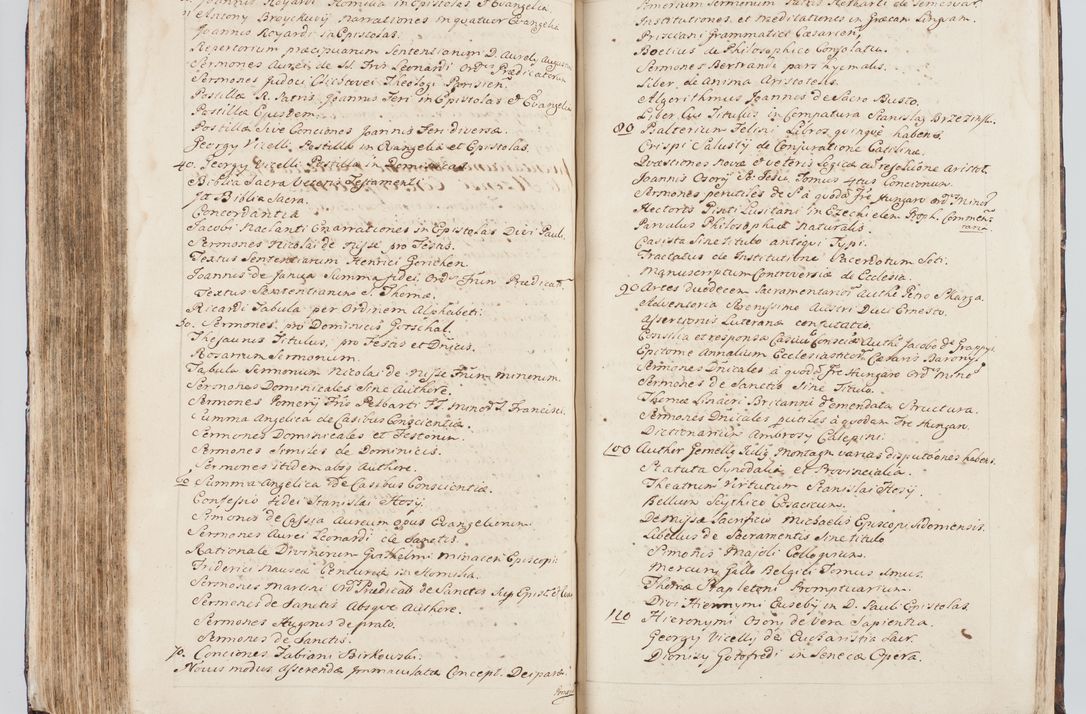 Joannis Royardi Homilia in Epistolas et Evangelia
Antony Broyckwy narrationes in quatuor Evangelia
Joannis Royardi in Epistolas.
Repertorium præcipuarum Sententiarum D. Aurely Augustini
Sermones Aurei de SS. Fris Leonardi Ord: Prædicatorum
Sermones Judoci Clichtovei Theologi Parisien:
Postilla R. Patris Joannis Feri in Epistolas et Evangelia
Postilla Ejusdem.
Postillæ Sive Conciones Joannis Feri diversæ.
Georgy Vicelli Postilla in Evangelia et Epistolas.
40. Georgy Vicelli Postilla in Dominicas
Biblia Sacra Veteris Testamenti
Jt. Biblia Sacra.
Concordantia
Jacobi Naclanti Enarrationes in Epistolas Divi Pauli
Sermones Nicolai de Nysse pro Festis.
Textus Sententiarum Henrici Gorichen
Joannis de Janua Summa fidei Ord: Frũn Prædicat:
Textus Sententianus S. Thomæ.
Ricardi Tabula per Ordinem Alphabeti
50. Sermones pro Dominicis Gotschal.
Thesaurus Titulus, pro Festis et Dñicis.
Rosarium Sermonum.
Tabula Sermonum Nicolai de Nysse Frũm minorum
Sermones Dominicales Sine Authore.
Sermones Pomery Fris Pelbarti FF. minor: S. Francisci.
Summa Angelica de Casibus Conscientiæ.
Sermones Dominicales et Festorum.
Sermones Similes de Dominicis.
Sermones itidem absq Authore.
60 Summa Angelica De Casibus Conscientiæ.
Confessio fidei Stanislai Hosy.
Simonis de Cassia Aureum opus Evangeliorum
Sermones Aurei Leonardi de Sanctis.
Rationale Divinorum Guilhelmi minacen Episcopi
Friderici Nauseæ Centuria in Homilia.
Sermones Martini Ord: Prædicat de Sanctis Sup Epist: et Evan
Sermones de Sanctis absque Authore.
Sermones Hugonis de prato.
Sermones de Sanctis.
70. Conciones Fabiani Birkowski.
Novus modus asserendæ Immaculatæ Concept. Deiparæ.
Institutiones et meditationes in græcam Linguam.
Prisciani Grammatici Cæsarien:
Boetius de Philosophico Consolatu.
Sermones Bertrandi pars hyemalis.
Liber de Anima Aristotelis.
Algorithmus Joannis de Sacro Busto.
Liber Titulus in Computum Stanislai Brzezinski.
80 Psalterium Felini Libros quinque habens.
Crispi Salusty de Conjuratione Catilinæ.
Quæstiones novæ et veteris Logicæ cũ resolutione Aristot.
Joannis Osory S. Jesu Tomus 4tus Concionum.
Sermones perutiles de S. à quodã Fre Hungaro Ord: minor:
Hectoris Pinti Lusitani in Ezechielem Proph. Commentaria
Parvulus Philosophiæ naturalis.
Casista Sine titulo antiqui Typi.
Tractatus de Institutione Sacerdotum Soti.
Manuscriptum Controversiæ de Ecclesia.
90 Artes duodecem Sacramentarior: Authe Petro Skarga.
Adventoria Serenissimo Austri Duci Ernesto.
Assertionis Luteranæ confutatio.
Consilia et responsa Casuũ Conscien: Authe Jacobo de Graffy.
Epitome Annalium Ecclesiasticor: Cæsaris Barony.
Sermones Dñicales à quodã Fre Hungaro Ord: Mino:
Sermones de Sanctis Sine Titulo.
Thomæ Linacri Britanni de emendata Structura.
Sermones Dñicales perutiles à quodam Fre Hungaro.
Dictionarium Ambrosy Calepini.
100 Author Gemelly varias disputaones habens.
Statuta Sinodalia et Provincialia.
Theatrum Virtutum Stanislai Hosy.
Bellum Scythico Cosacicum.
De Missæ Sacrificio Michaelis Episcopi Sidoniensis.
Libellus de Sacramentis Sine titulo
Simonis Majoli Colloquium.
Mercury Gallo Belgici Tomus Imus.
Thomæ Stapletoni Promptuarium.
Divi Hieronymi Euseby in D. Pauli Epistolas.
110 Hieronymi Osory de Vera Sapientia.
Georgy Vicelly de Eucharistia Sacr.
Dionisy Gotofredi in Senecæ Opera.